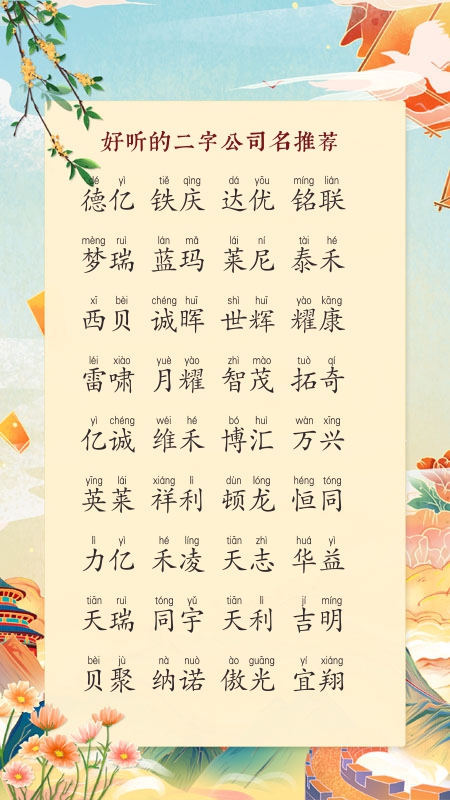 好听的二字公司名推荐
dé yì tiě qìng dá yōu míng lián
德亿 铁庆 达优 铭联
mèng ruì lán mǎ lái ní tài hé
梦瑞 蓝玛 莱尼 泰禾
xī bèi chéng huī shì huī yào kāng
西贝 诚晖 世辉 耀康
léi xiào yuè yào zhì mào tuò qí
雷啸 月耀 智茂 拓奇
yì chéng wéi hé bó huì wàn xīng
亿诚 维禾 博汇 万兴
yīng lái xiáng lì dùn lóng héng tóng
英莱 祥利 顿龙 恒同
lì yì hé líng tiān zhì huá yì
力亿 禾凌 天志 华益
tiān ruì tóng yǔ tiān lì jí míng
天瑞 同宇 天利 吉明
bèi jù nà nuò ào guāng yí xiáng
贝聚 纳诺 傲光 宜翔